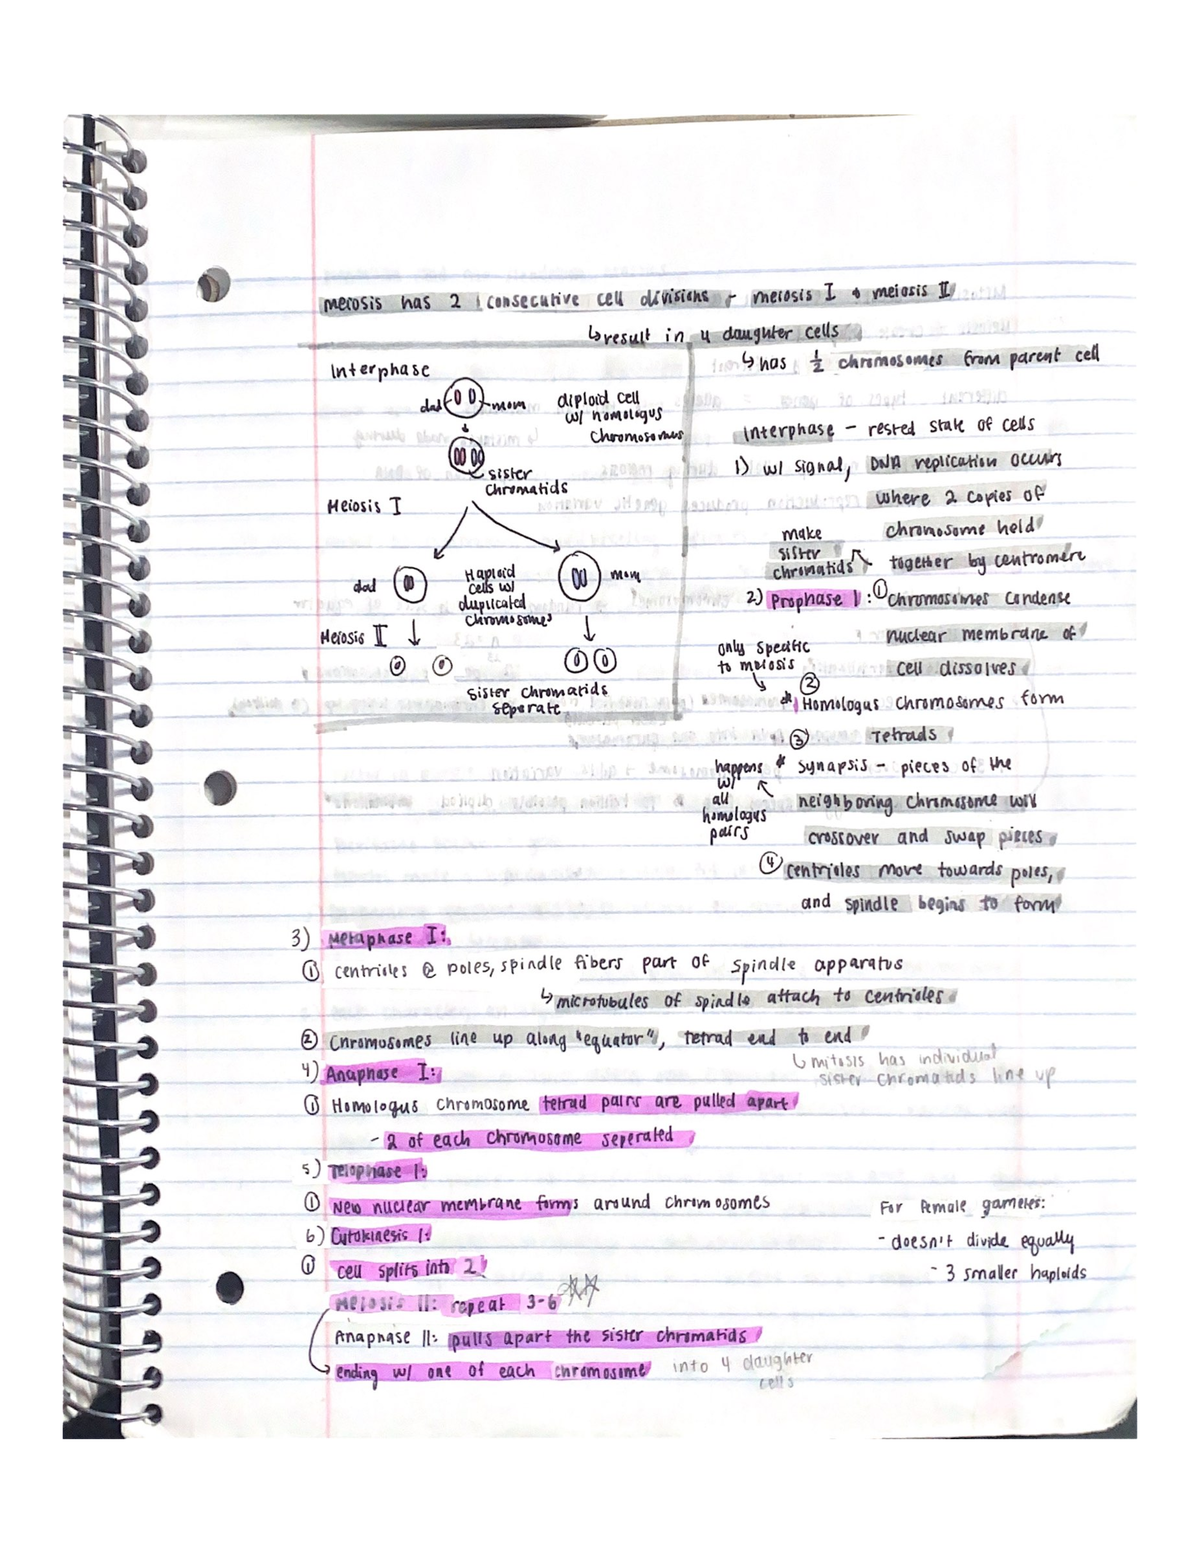 meiosis has 2 consecutive cell divisions - meiosis I & meiosis II
↳ result in 4 daughter cells
↳ has 1/2 chromosomes from parent cell
Interphase
dad mom
diploid cell
w/ homologus
chromosomes
sister
chromatids
Meiosis I
dad
Haploid
cells w/
duplicated
chromosomes
mom
Meiosis II
Sister chromatids
seperate
Interphase - rested state of cells
1) w/ signal, DNA replication occurs
where 2 copies of
chromosome held
together by centromere
make
sister
chromatids
2) Prophase I: ① Chromosomes condense
nuclear membrane of
cell dissolves
only specific
to meiosis
② * Homologus chromosomes form
Tetrads
③ * synapsis - pieces of the
neighboring chromosome will
crossover and swap pieces
happens
w/
all
homologus
pairs
④ centrioles move towards poles,
and spindle begins to form
3) Metaphase I:
① centrioles @ poles, spindle fibers part of spindle apparatus
↳ microtubules of spindle attach to centrioles
② Chromosomes line up along "equator", tetrad end to end
↳ mitosis has individual
sister chromatids line up
4) Anaphase I:
① Homologus chromosome tetrad pairs are pulled apart
- 2 of each chromosome seperated
5) Telophase I:
① New nuclear membrane forms around chromosomes
6) Cytokinesis I:
① cell splits into 2
For female gametes:
- doesn't divide equally
- 3 smaller haploids
Meiosis II: repeat 3-6
Anaphase II: pulls apart the sister chromatids
ending w/ one of each chromosome into 4 daughter
cells